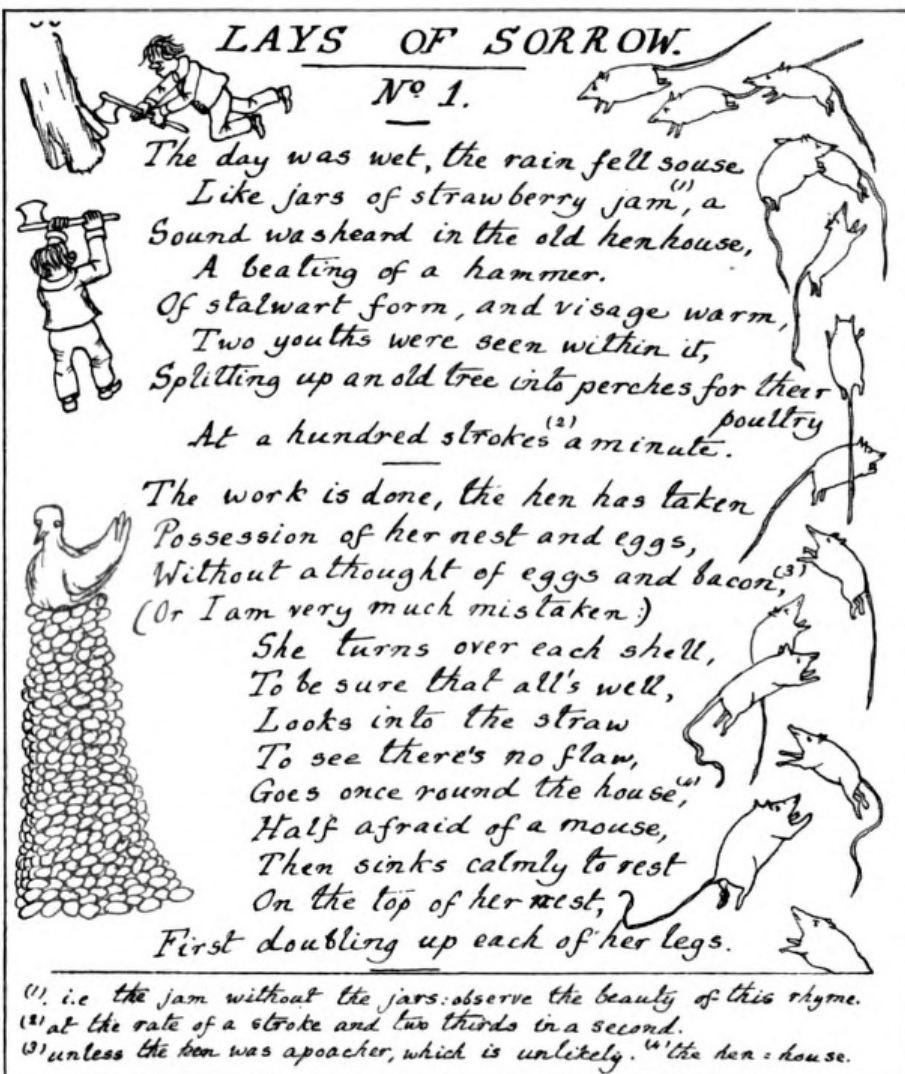 LAYS OF SORROW.
Nº 1.
The day was wet, the rain fell souse
Like jars of strawberry jam,⁽¹⁾ a
Sound was heard in the old henhouse,
A beating of a hammer.
Of stalwart form, and visage warm,
Two youths were seen within it,
Splitting up an old tree into perches for their
poultry
At a hundred strokes⁽²⁾ a minute.
The work is done, the hen has taken
Possession of her nest and eggs,
Without a thought of eggs and bacon,⁽³⁾
(Or I am very much mistaken:)
She turns over each shell,
To be sure that all's well,
Looks into the straw
To see there's no flaw,
Goes once round the house,⁽⁴⁾
Half afraid of a mouse,
Then sinks calmly to rest
On the top of her nest,
First doubling up each of her legs.
(1). i.e the jam without the jars: observe the beauty of this rhyme.
(2) at the rate of a stroke and two thirds in a second.
(3) unless the hen was a poacher, which is unlikely. (4) the hen=house.